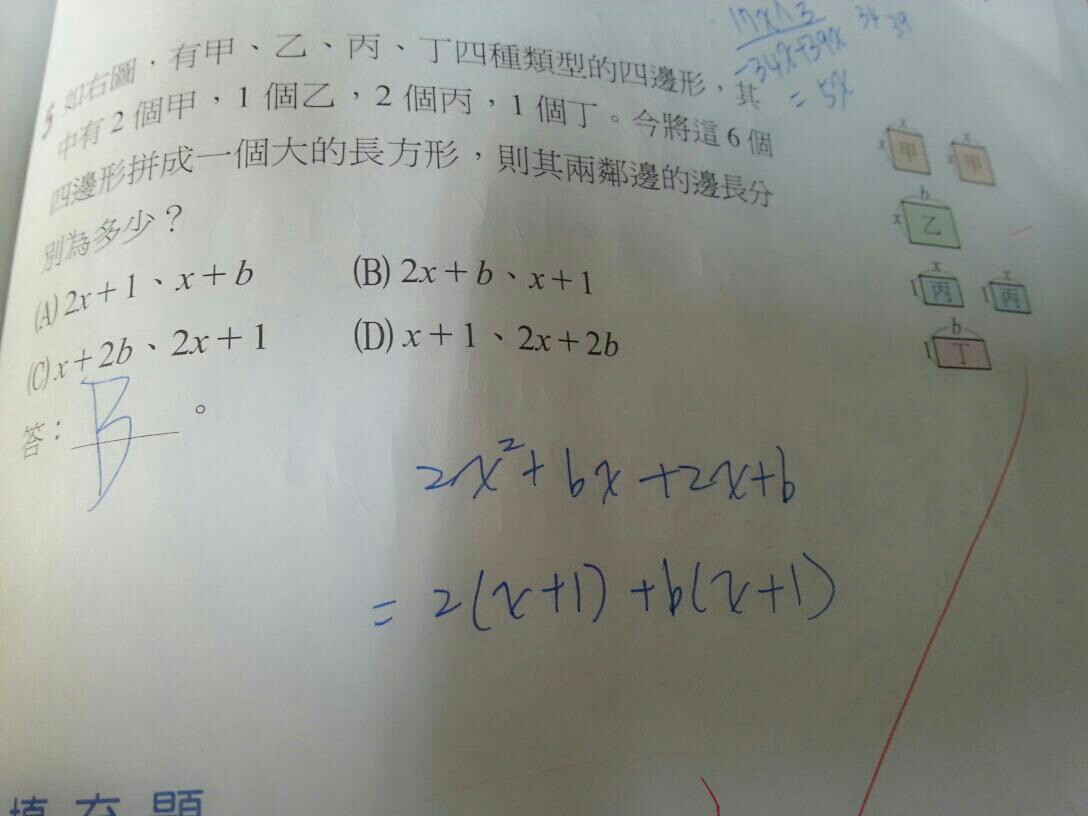 17x^3
34 39
-34x+39x
= 5x
5 如右圖,有甲、乙、丙、丁四種類型的四邊形,其
中有2個甲,1個乙,2個丙,1個丁。今將這6個
四邊形拼成一個大的長方形,則其兩鄰邊的邊長分
別為多少?
(A) 2x+1、x+b (B) 2x+b、x+1
(C) x+2b、2x+1 (D) x+1、2x+2b
答:B。
x x
x 甲 x 甲
b
x 乙
x x
1 丙 1 丙
b
1 丁
2x²+bx+2x+b
=2(x+1)+b(x+1)
填充題